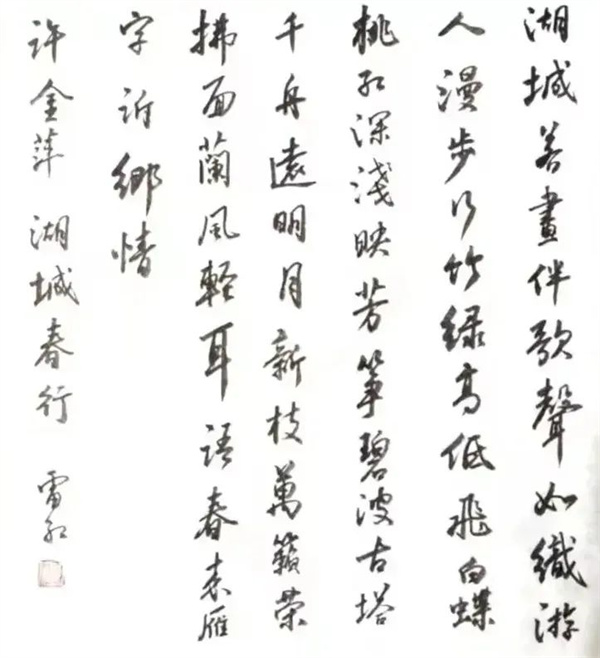 湖城善畫伴歌聲如織游
人漫步行竹緑高低飛白蝶
桃红深淺映芳筝碧波古塔
千舟遠明月新枝萬籟荣
拂面蘭風軽耳語春来雁
字訴鄉情
許金萍 湖城春行 雷红